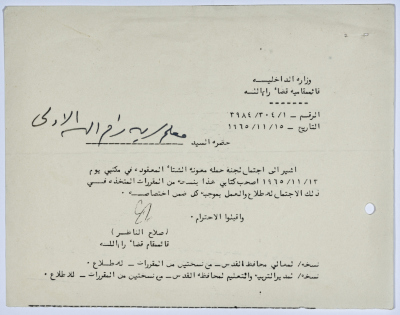 وزارة الداخليـــه
قائمقامية قضاء رام الله
الرقم - ٣٩٨٤/٣٠٤/١
التاريخ - ١٩٦٥/١١/١٥
حضرة السيد
اشير الى اجتماع لجنة حملة معونة الشتاء المعقودة في مكتبي يوم
١٩٦٥/١١/١٣ اصحب كتابي هذا بنسخه من المقررات المتخذه فـــي
ذلك الاجتماع للاطلاع والعمل بموجبه كل ضمن اختصاصه -
واقبلوا الاحترام -
(صلاح الناظـــر)
قائمقام قضاء رام الله
نسخة/ لمعالي محافظ القدس - مع نسختين من المقررات - للاطلاع .
نسخة/ لمدير التربية والتعليم لمحافظة القدس - مع نسختين من المقررات - للاطلاع .